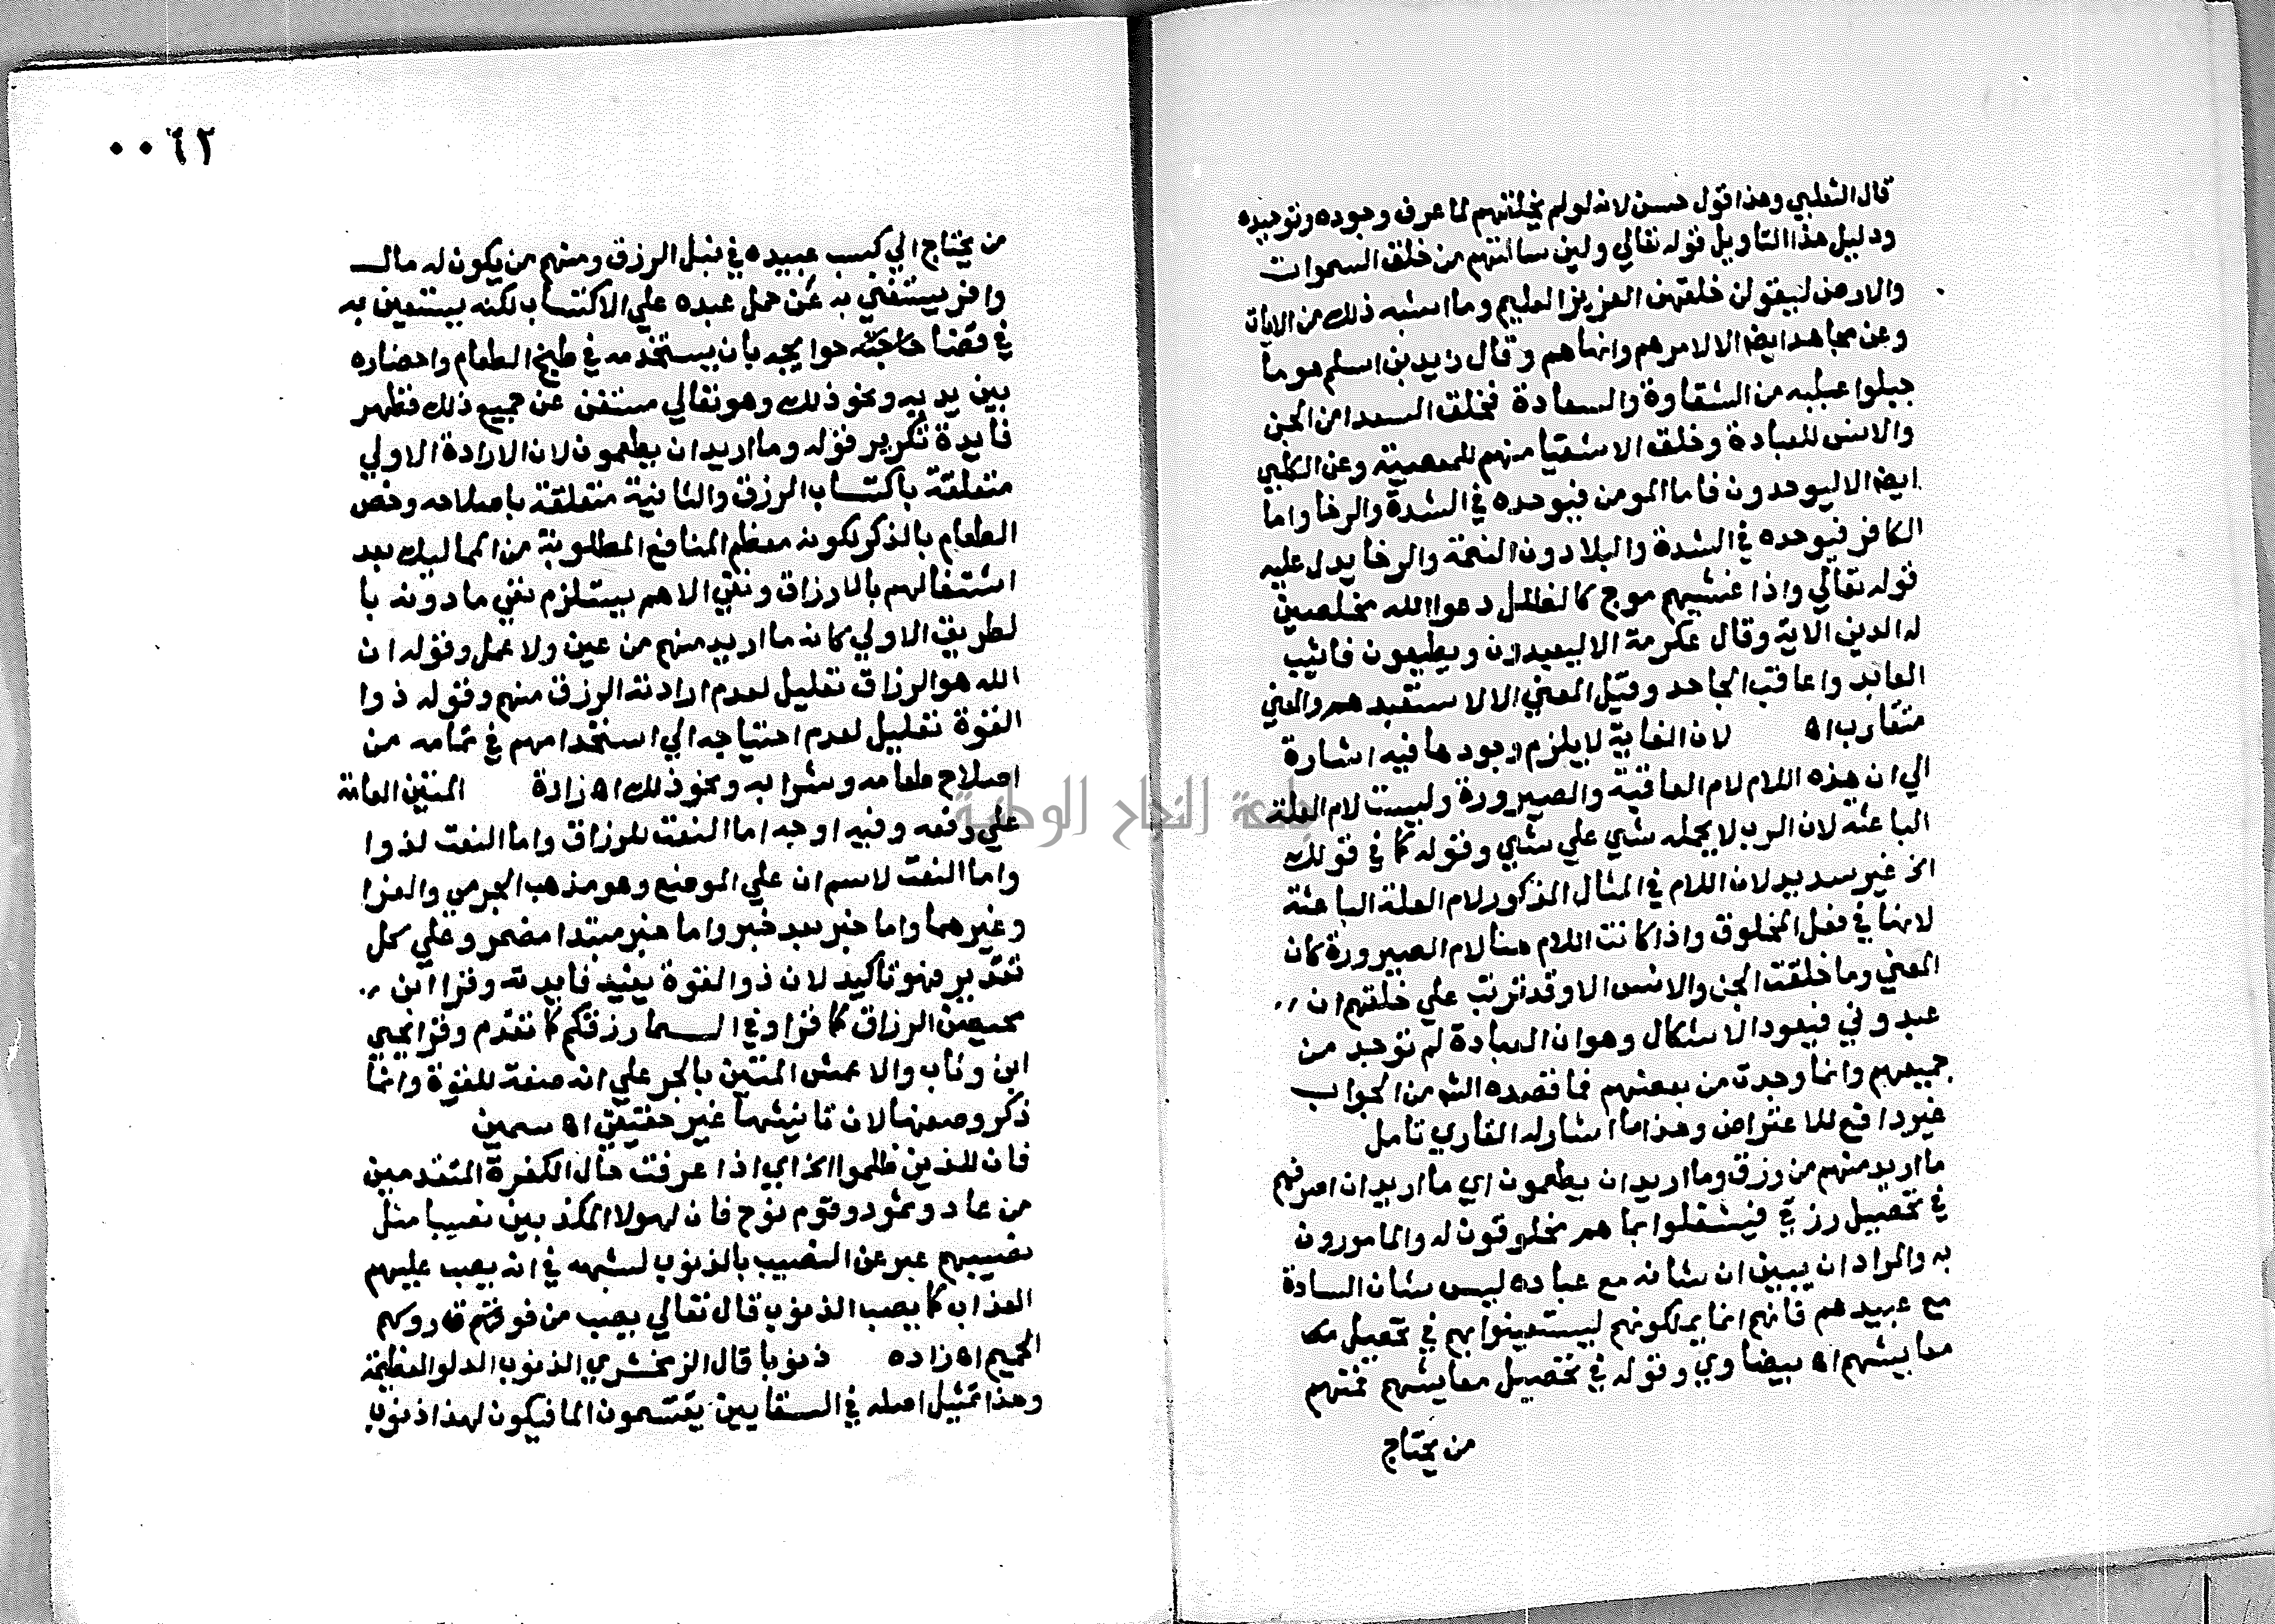 قال الثعلبي وهذا قول حسن لانه لو لم يخلقهم لما عرف وجوده وتوحيده
ودليل هذا التاويل قوله تعالي ولين سالتهم من خلق السموات
والارض ليقولن خلقهن العزيز العليم وما اشبه ذلك من الايات
وعن مجاهد ايضا الا لامرهم وانهاهم وقال زيد بن اسلم هو ما
جبلوا عليه من الشقاوة والسعادة فخلق السعدا من الجن
والانس للعبادة وخلق الاشقيا منهم للمعصية وعن الكلبي
ايضا الا ليوحدون فاما المومن فيوحده في الشدة والرخا واما
الكافر فيوحده في الشدة والبلا دون النعمة والرخا يدل عليه
قوله تعالي واذا غشيهم موج كالظلل دعوا الله مخلصين
له الدين الاية وقال عكرمة الا ليعبدون ويطيعون فاثيب
العابد واعاقب الجاحد وقيل المعني الا لاستعبدهم والمعني
متقارب اه لان الغاية لا يلزم وجودها فيه اشارة
الي ان هذه اللام لام العاقبة والصيرورة وليست لام العلة
الباعثة لان الرب لا يحمله شي علي شي وقوله كما في قولك
الخ غير سديد لان اللام في المثال المذكور لام العلة الباعثة
لانها في فعل المخلوق واذا كانت اللام هنا لام الصيرورة كان
المعني وما خلقت الجن والانس الا وقد ترتب علي خلقهم ان
عبدوني فيعود الاشكال وهو ان العبادة لم توجد من
جميعهم وانما وجدت من بعضهم فما قصده الش من الجواب
غير دافع للاعتراض وهذا ما اشار له القاري تامل
ما اريد منهم من رزق وما اريد ان يطعمون اي ما اريد ان اصرفهم
في تحصيل رزقي فيشتغلوا بما هم مخلوقون له والمامورون
به والمراد ان يبين ان شانه مع عباده ليس شان السادة
مع عبيدهم فانهم انما يملكونهم ليستعينوا بهم في تحصيل
معايشهم اه بيضاوي وقوله في تحصيل معايشهم فمنهم
من يحتاج
٠٠٦٢
من يحتاج الي كسب عبيده في نيل الرزق ومنهم من يكون له مال
وافر يستغني به عن حمل عبده علي الاكتساب لكنه يستعين به
في قضا حاجته حوايجه بان يستخدمه في طبخ الطعام واحضاره
بين يديه ونحو ذلك وهو تعالي مستغن عن جميع ذلك فظهر
فايدة تكرير قوله وما اريد ان يطعمون لان الارادة الاولي
متعلقة باكتساب الرزق والثانية متعلقة باصلاحه وخص
الطعام بالذكر لكونه معظم المنافع المطلوبة من المماليك بعد
اشتغالهم بالارزاق ونفي الاهم يستلزم نفي ما دونه با
لطريق الاولي كانه ما اريد منهم من عين ولا عمل وقوله ان
الله هو الرزاق تعليل لعدم ارادته الرزق منهم وقوله ذوا
القوة تعليل لعدم احتياجه الي استخدامهم في من
اصلاح طعامه وشرابه ونحو ذلك اه زادة المتين العامة
علي رفعه وفيه اوجه اما النعت للرزاق واما النعت لذوا
واما النعت لاسم ان علي الموضع وهو مذهب الجرمي والفرا
وغيرهما واما خبر بعد خبر واما خبر مبتدا مضمر وعلي كل
تقدير فهو تاكيد لان ذو القوة يفيد فايدته وقرا ابن
محيصن الرزاق كما قرا وفي السما رزقكم كما تقدم وقرا يحيي
ابن وثاب والاعمش المتين بالجر علي انه صفة للقوة وانما
ذكر وصفها لان تانيثها غير حقيقي اه سمين
فان للذين ظلموا الخ اي اذا عرفت حال الكفرة المتقدمين
من عاد وثمود وقوم نوح فان لهولا المكذبين نصيبا مثل
نصيبهم عبر عن النصيب بالذنوب لشبهه في انه يصب عليهم
العذاب كما يصب الذنوب قال تعالي يصب من فوق روسهم
الحميم اه زاده ذنوبا قال الزمخشري الذنوب الدلو العظيمة
وهذا تمثيل اصله في السقايين يقتسمون الما فيكون لهذا ذنوب
جامعة النجاح الوطنية